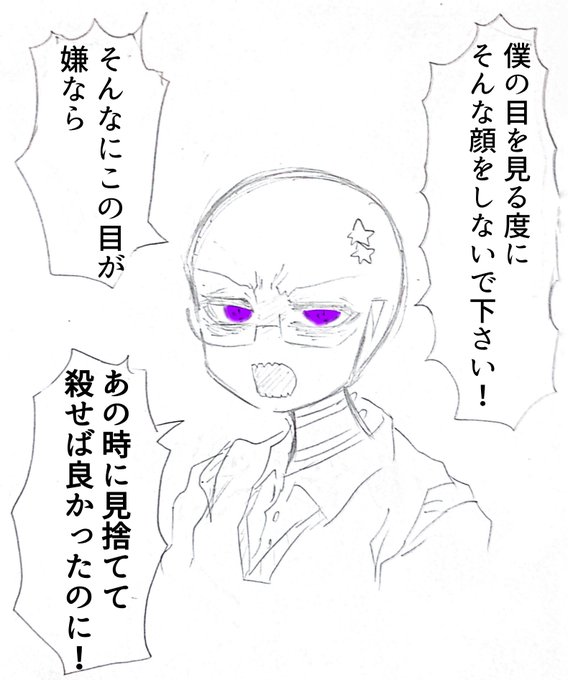 僕の目を見る度に
そんな顔をしないで下さい！
そんなにこの目が
嫌なら
あの時に見捨てて
殺せば良かったのに！